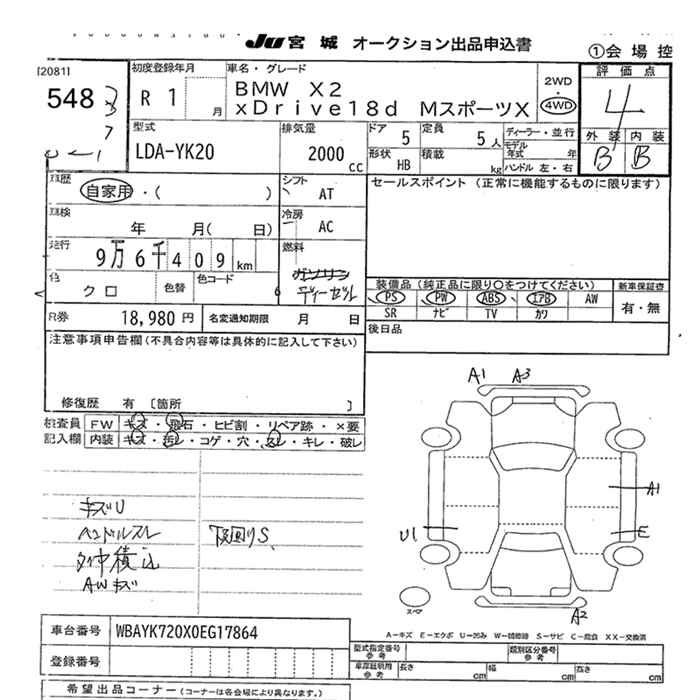 JU 宮城 オークション出品申込書
①会場控
[2081]
548
初度登録年月
R 1 月
車名・グレード
BMW X2
xDrive18d MスポーツX
2WD
4WD
評価点
4
外装 内装
B B
型式
LDA-YK20
排気量
2000 CC
ドア 5
定員 5 人
形状 HB
積載 kg
ディーラー・並行
モデル年式 年
ハンドル 左・右
車歴
自家用・( )
シフト
AT
セールスポイント(正常に機能するものに限ります)
車検
年 月( 日)
冷房
AC
走行
9万6千409km
燃料
ガソリン
ディーゼル
色
クロ
色替
色コード
装備品(純正品に限り〇をつけてください)
新車保証書
PS PW ABS エアB AW
有・無
SR ナビ TV カワ
R券
18,980円
名変通知期限 月 日
後日品
注意事項申告欄(不具合内容等は具体的に記入して下さい)
修復歴 有 [箇所 ]
検査員
記入欄
FW キズ・飛石・ヒビ割・リペア跡・×要
内装 キズ・汚レ・コゲ・穴・スレ・キレ・破レ
A1 A3
A1
U1
E
A2
キズU
ハンドルスレ
下回りS
積込
AWキズ
スペア
A−キズ E−エクボ U−凹み W−補修跡 S−サビ C−腐食 XX−交換済
車台番号
WBAYK720X0EG17864
登録番号
型式指定番号
参考
類別区分番号
参考
車庫証明用
参考
長さ cm
幅 cm
高さ cm
希望出品コーナー(コーナーは各会場により異なります。)